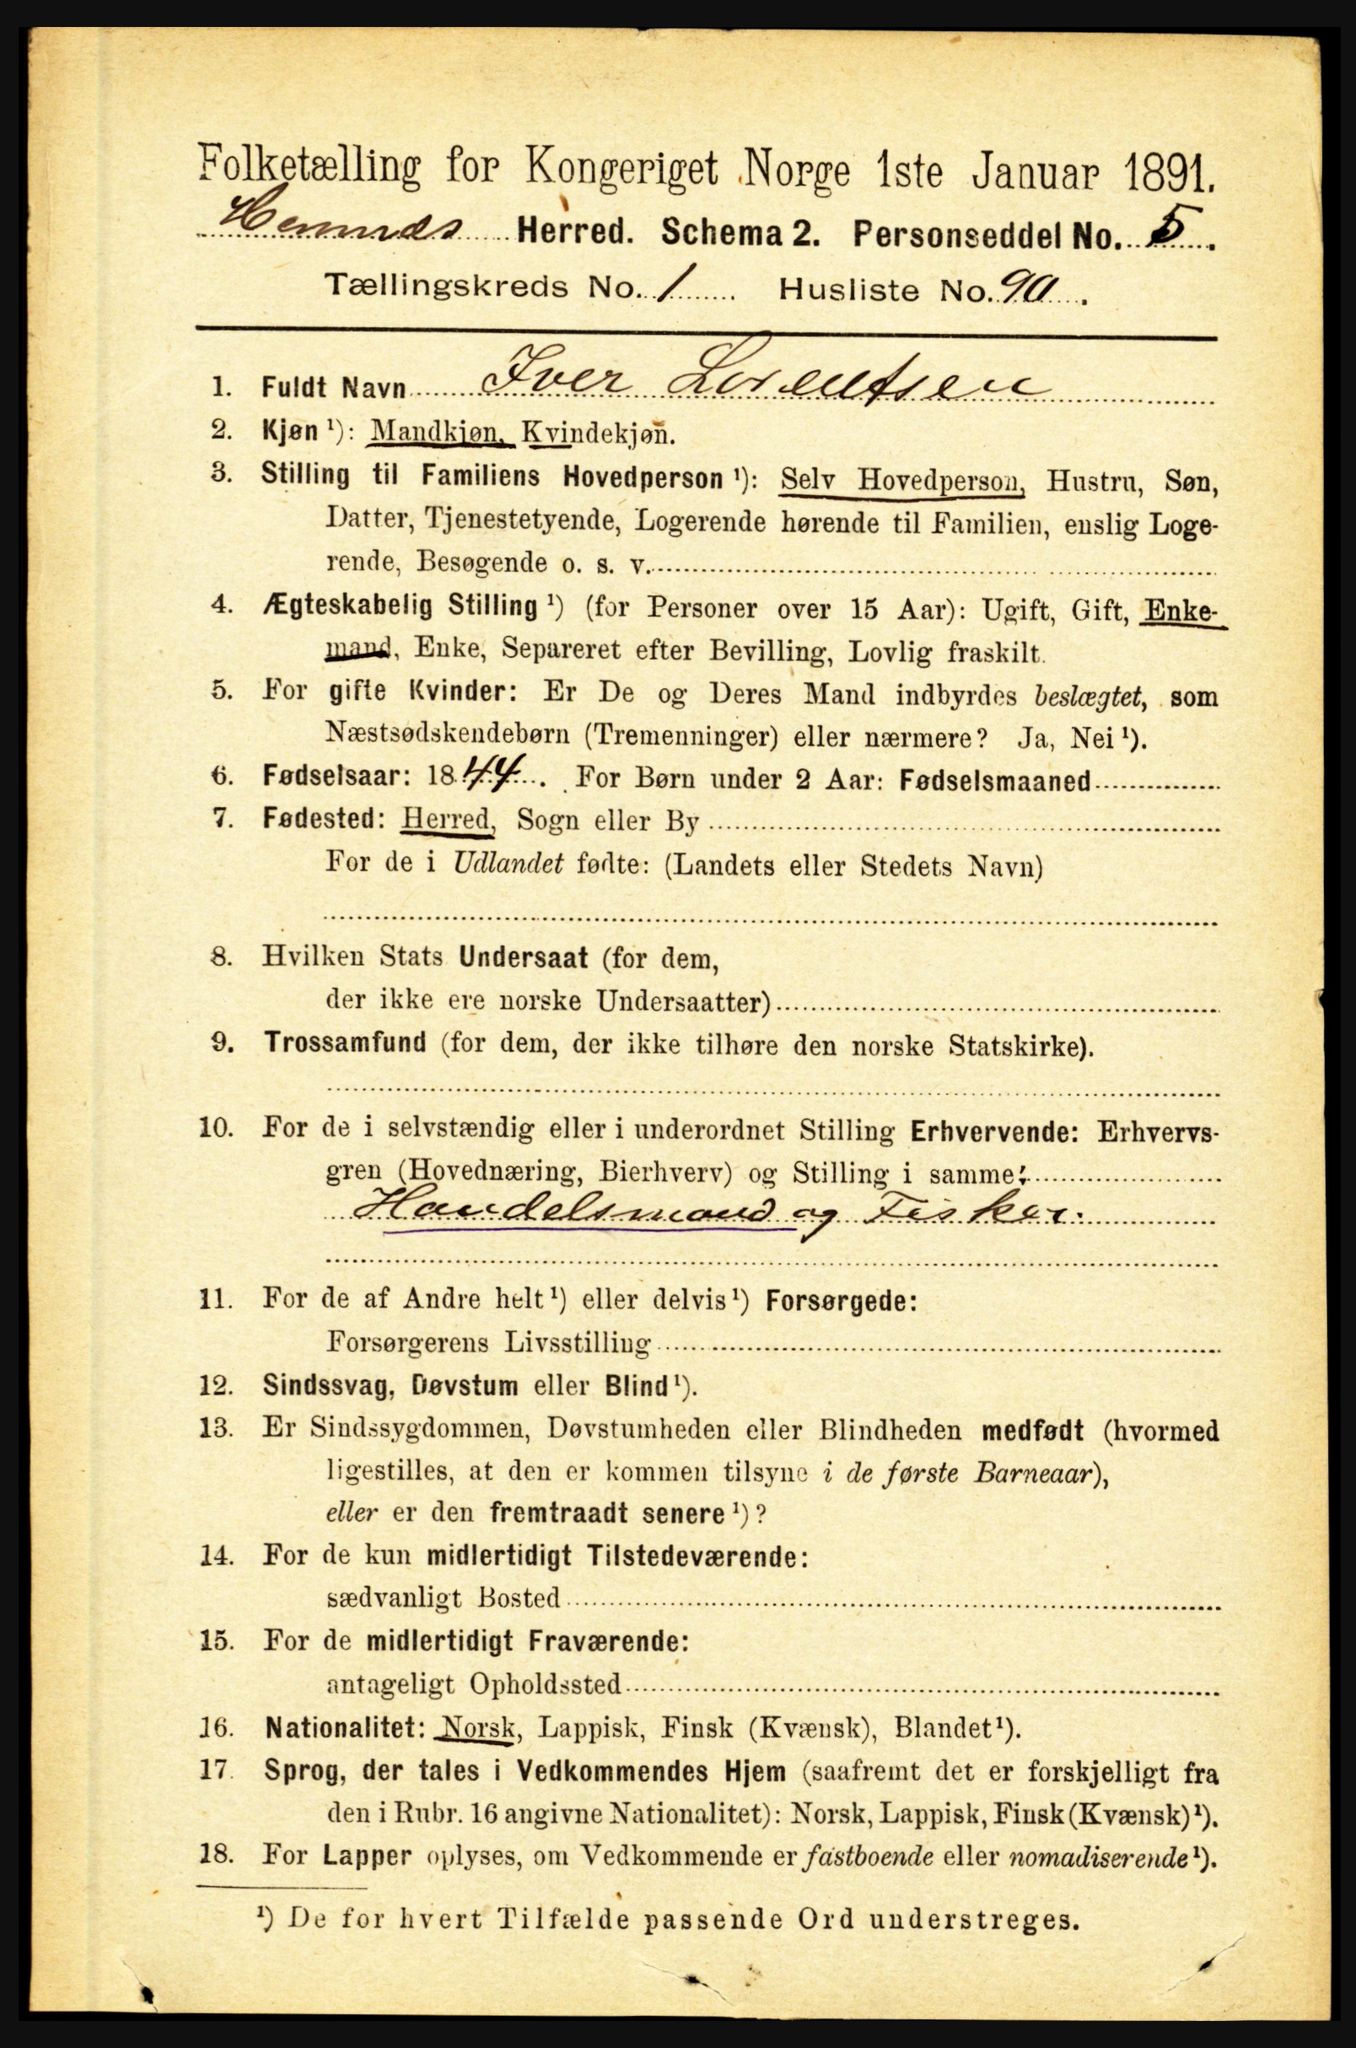 Folketælling for Kongeriget Norge 1ste Januar 1891.
Hemnæs Herred. Schema 2. Personseddel No. 5.
Tællingskreds No. 1 Husliste No. 90.
1. Fuldt Navn Iver Lorentsen
2. Kjøn ¹): Mandkjøn, Kvindekjøn.
3. Stilling til Familiens Hovedperson ¹): Selv Hovedperson, Hustru, Søn,
Datter, Tjenestetyende, Logerende hørende til Familien, enslig Loge-
rende, Besøgende o. s. v.
4. Ægteskabelig Stilling ¹) (for Personer over 15 Aar): Ugift, Gift, Enke-
mand, Enke, Separeret efter Bevilling, Lovlig fraskilt.
5. For gifte Kvinder: Er De og Deres Mand indbyrdes beslægtet, som
Næstsødskendebørn (Tremenninger) eller nærmere? Ja, Nei ¹).
6. Fødselsaar: 1844. For Børn under 2 Aar: Fødselsmaaned
7. Fødested: Herred, Sogn eller By
For de i Udlandet fødte: (Landets eller Stedets Navn)
8. Hvilken Stats Undersaat (for dem,
der ikke ere norske Undersaatter)
9. Trossamfund (for dem, der ikke tilhøre den norske Statskirke).
10. For de i selvstændig eller i underordnet Stilling Erhvervende: Erhvervs-
gren (Hovednæring, Bierhverv) og Stilling i samme:
Handelsmand og Fisker.
11. For de af Andre helt ¹) eller delvis ¹) Forsørgede:
Forsørgerens Livsstilling
12. Sindssvag, Døvstum eller Blind ¹).
13. Er Sindssygdommen, Døvstumheden eller Blindheden medfødt (hvormed
ligestilles, at den er kommen tilsyne i de første Barneaar),
eller er den fremtraadt senere ¹)?
14. For de kun midlertidigt Tilstedeværende:
sædvanligt Bosted
15. For de midlertidigt Fraværende:
antageligt Opholdssted
16. Nationalitet: Norsk, Lappisk, Finsk (Kvænsk), Blandet ¹).
17. Sprog, der tales i Vedkommendes Hjem (saafremt det er forskjelligt fra
den i Rubr. 16 angivne Nationalitet): Norsk, Lappisk, Finsk (Kvænsk) ¹).
18. For Lapper oplyses, om Vedkommende er fastboende eller nomadiserende ¹).
¹) De for hvert Tilfælde passende Ord understreges.